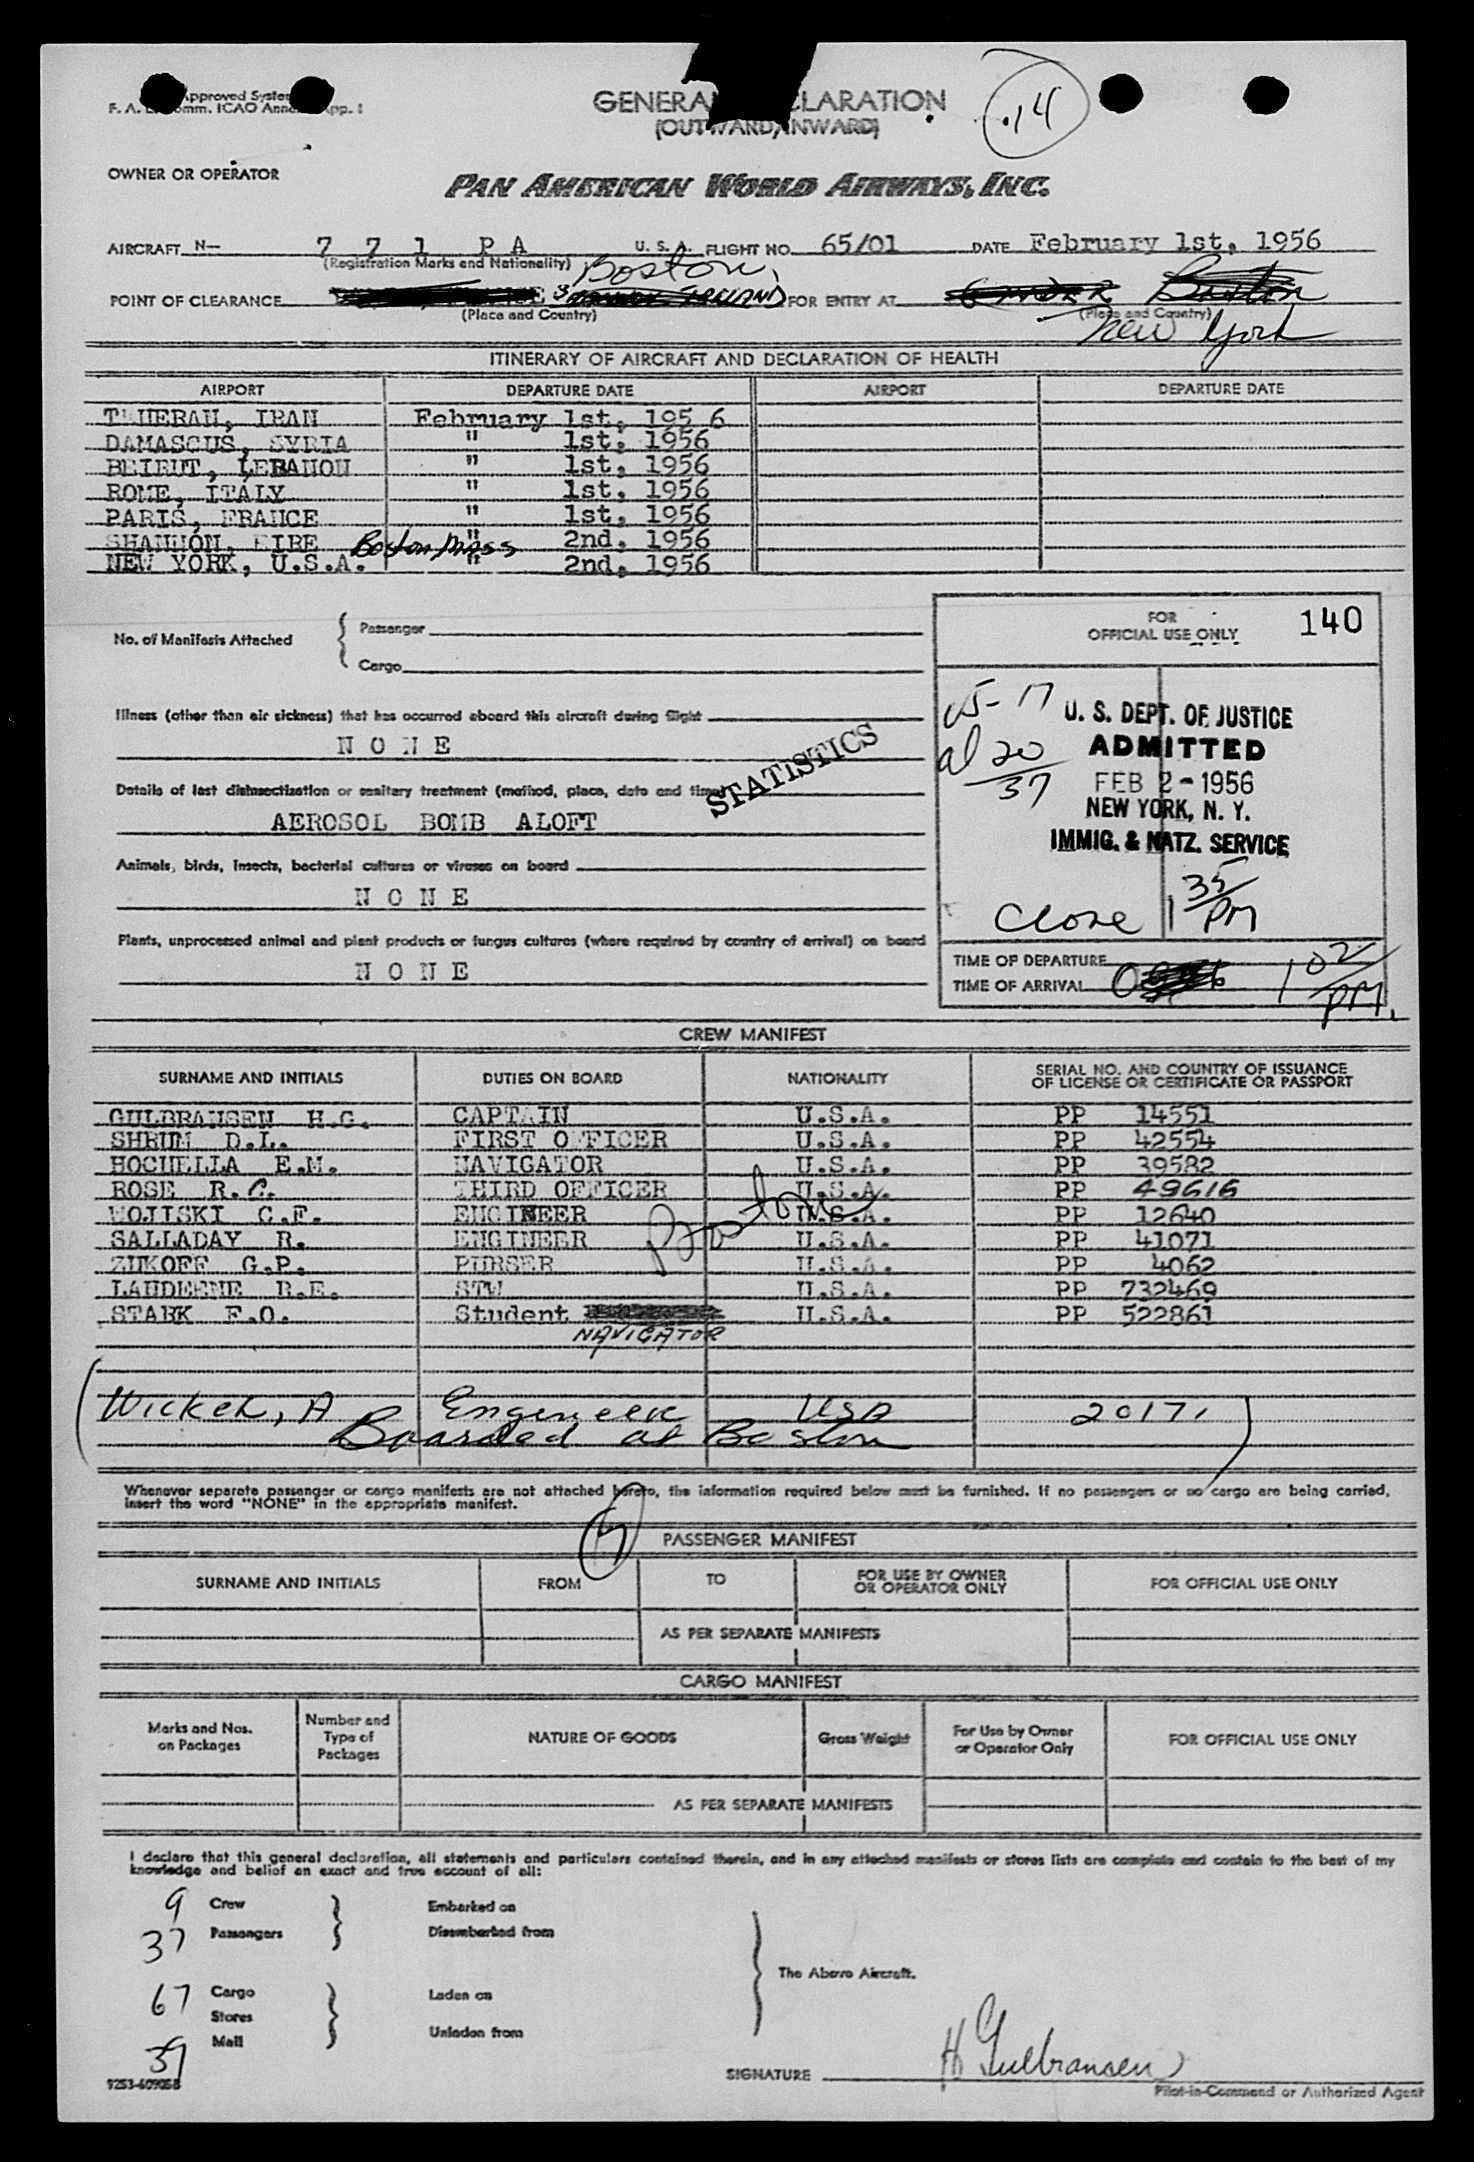 Approved System
F. A. Comm. ICAO App. 1
GENERAL DECLARATION
(OUTWARD/INWARD)
.14
OWNER OR OPERATOR
PAN AMERICAN WORLD AIRWAYS, INC.
AIRCRAFT N— 7 7 1 P A U. S. A. FLIGHT NO. 65/01 DATE February 1st, 1956
(Registration Marks and Nationality)
Boston,
POINT OF CLEARANCE FOR ENTRY AT Boston
(Place and Country) (Place and Country)
New York
ITINERARY OF AIRCRAFT AND DECLARATION OF HEALTH
AIRPORT DEPARTURE DATE AIRPORT DEPARTURE DATE
TEHERAN, IRAN February 1st, 195 6
DAMASCUS, SYRIA " 1st, 1956
BEIRUT, LEBANON " 1st, 1956
ROME, ITALY " 1st, 1956
PARIS, FRANCE " 1st, 1956
SHANNON, EIRE Boston Mass " 2nd, 1956
NEW YORK, U.S.A. " 2nd, 1956
FOR
OFFICIAL USE ONLY 140
No. of Manifests Attached
Passenger
Cargo
Illness (other than air sickness) that has occurred aboard this aircraft during flight
N O N E
Details of last disinsectization or sanitary treatment (method, place, date and time)
STATISTICS
AEROSOL BOMB ALOFT
Animals, birds, insects, bacterial cultures or viruses on board
N O N E
Plants, unprocessed animal and plant products or fungus cultures (where required by country of arrival) on board
N O N E
U. S. DEPT. OF JUSTICE
ADMITTED
FEB 2 - 1956
NEW YORK, N. Y.
IMMIG. & NATZ. SERVICE
US - 17
al 20
37
Close 1 35/PM
TIME OF DEPARTURE
TIME OF ARRIVAL 1 02/PM.
CREW MANIFEST
SURNAME AND INITIALS DUTIES ON BOARD NATIONALITY SERIAL NO. AND COUNTRY OF ISSUANCE OF LICENSE OR CERTIFICATE OR PASSPORT
GULBRANSEN H.G. CAPTAIN U.S.A. PP 14551
SHRUM D.L. FIRST OFFICER U.S.A. PP 42554
HOCHELLA E.M. NAVIGATOR U.S.A. PP 39582
ROSE R.C. THIRD OFFICER U.S.A. PP 49616
WOJTSKI C.F. ENGINEER U.S.A. PP 12640
SALLADAY R. ENGINEER U.S.A. PP 41071
ZUKOFF G.P. PURSER U.S.A. PP 4062
LAUDEENE R.E. STW U.S.A. PP 732469
STARK F.O. Student U.S.A. PP 522861
NAVIGATOR
Boston
Wicker, A Engineer USA 20171
Boarded at Boston
Whenever separate passenger or cargo manifests are not attached hereto, the information required below must be furnished. If no passengers or no cargo are being carried,
insert the word "NONE" in the appropriate manifest.
PASSENGER MANIFEST
SURNAME AND INITIALS FROM TO FOR USE BY OWNER OR OPERATOR ONLY FOR OFFICIAL USE ONLY
AS PER SEPARATE MANIFESTS
CARGO MANIFEST
Marks and Nos. on Packages Number and Type of Packages NATURE OF GOODS Gross Weight For Use by Owner or Operator Only FOR OFFICIAL USE ONLY
AS PER SEPARATE MANIFESTS
I declare that this general declaration, all statements and particulars contained therein, and in any attached manifests or stores lists are complete and contain to the best of my
knowledge and belief an exact and true account of all:
9 Crew Embarked on
37 Passengers Disembarked from
The Above Aircraft.
67 Cargo Laden on
Stores
Mail Unladen from
39
SIGNATURE H Gulbransen
Pilot-in-Command or Authorized Agent
9253-609058